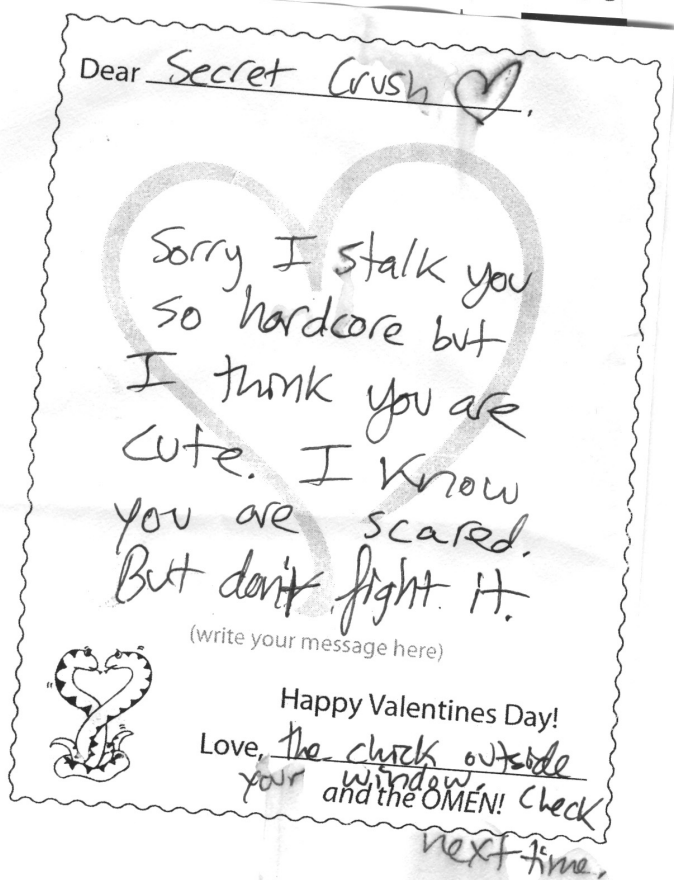 Dear Secret Crush ,
Sorry I stalk you
so hardcore but
I think you are
cute. I know
you are scared.
But don't fight it.
(write your message here)
Happy Valentines Day!
Love, the chick outside
your window.
and the OMEN! Check
next time.